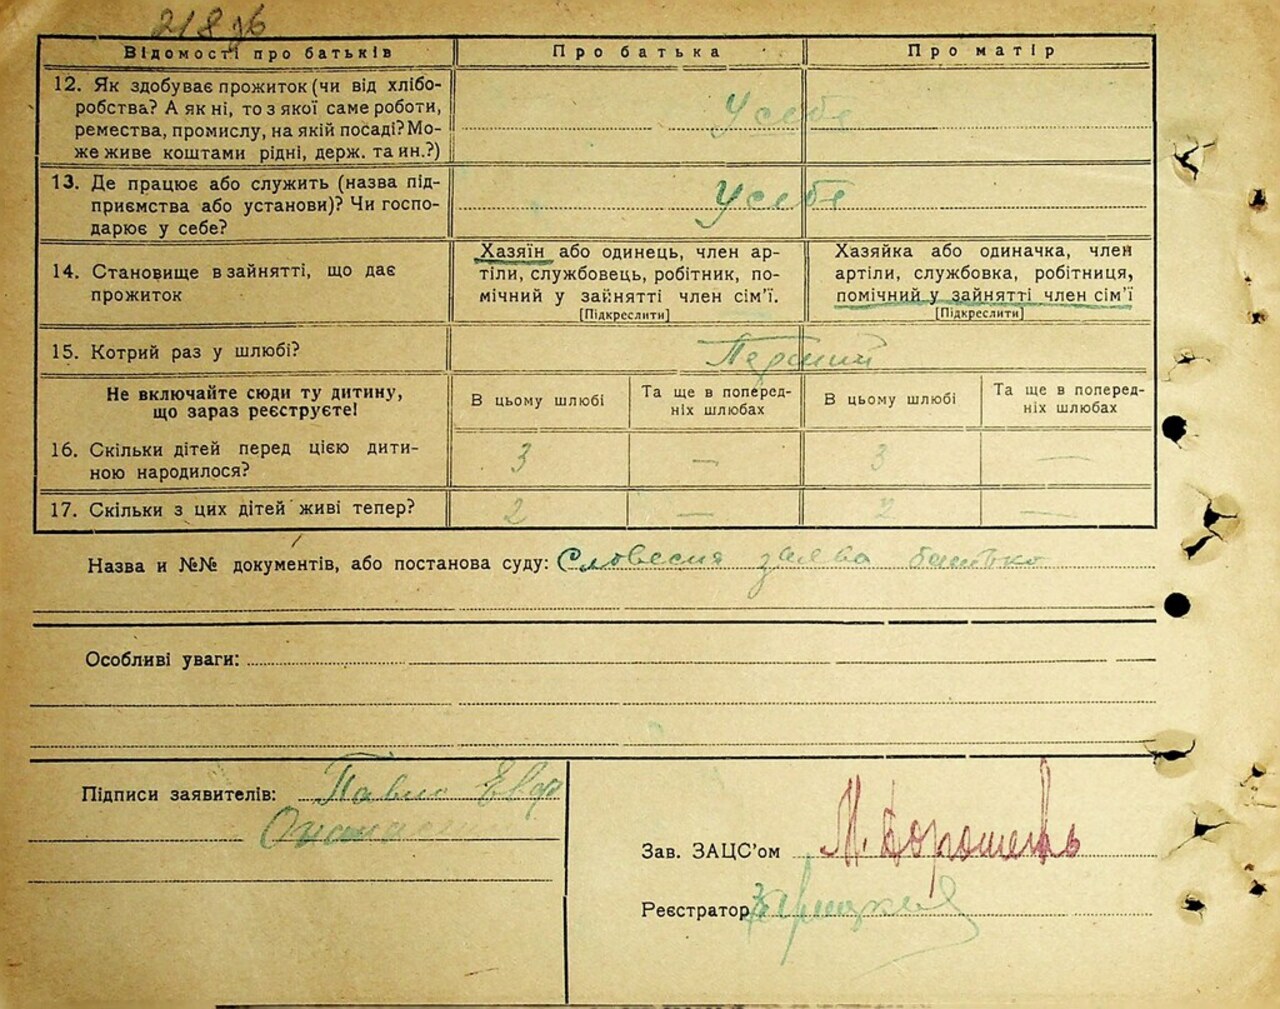 218 зб
Відомості про батьків
Про батька
Про матір
12. Як здобуває прожиток (чи від хлібо-
робства? А як ні, то з якої саме роботи,
ремества, промислу, на якій посаді? Мо-
же живе коштами рідні, держ. та ин.?)
У себе
13. Де працює або служить (назва під-
приємства або установи)? Чи госпо-
дарює у себе?
У себе
14. Становище в зайнятті, що дає
прожиток
Хазяїн або одинець, член ар-
тіли, службовець, робітник, по-
мічний у зайнятті член сім'ї.
[Підкреслити]
Хазяйка або одиначка, член
артіли, службовка, робітниця,
помічний у зайнятті член сім'ї
[Підкреслити]
15. Котрий раз у шлюбі?
Первий
Не включайте сюди ту дитину,
що зараз реєструєте!
В цьому шлюбі
Та ще в поперед-
ніх шлюбах
В цьому шлюбі
Та ще в поперед-
ніх шлюбах
16. Скільки дітей перед цією дити-
ною народилося?
3 — 3 —
17. Скільки з цих дітей живі тепер?
2 — 2 —
Назва и №№ документів, або постанова суду: Словесна заява батько
Особливі уваги:
Підписи заявителів: Павло
Зав. ЗАЦС'ом
Реєстратор